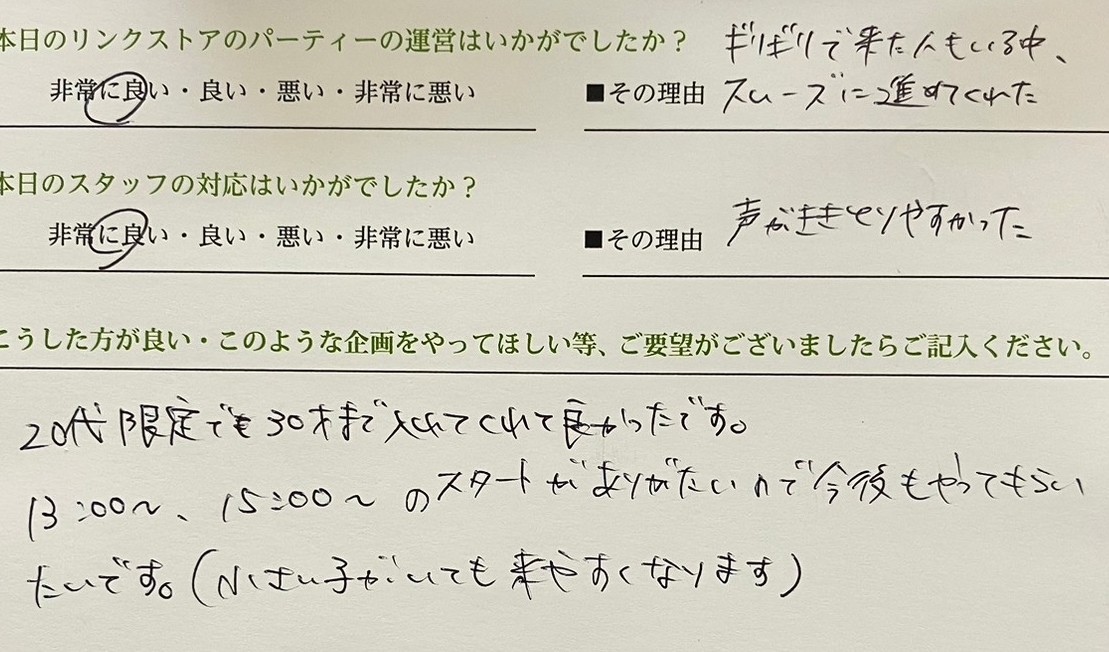 本日のリンクストアのパーティーの運営はいかがでしたか？
非常に良い・良い・悪い・非常に悪い
■その理由 ギリギリで来た人もいる中、
スムーズに進めてくれた
本日のスタッフの対応はいかがでしたか？
非常に良い・良い・悪い・非常に悪い
■その理由 声がききとりやすかった
こうした方が良い・このような企画をやってほしい等、ご要望がございましたらご記入ください。
20代限定でも30才まで入れてくれて良かったです。
13:00〜、15:00〜のスタートがありがたいので今後もやってもらい
たいです。(小さい子がいても来やすくなります)